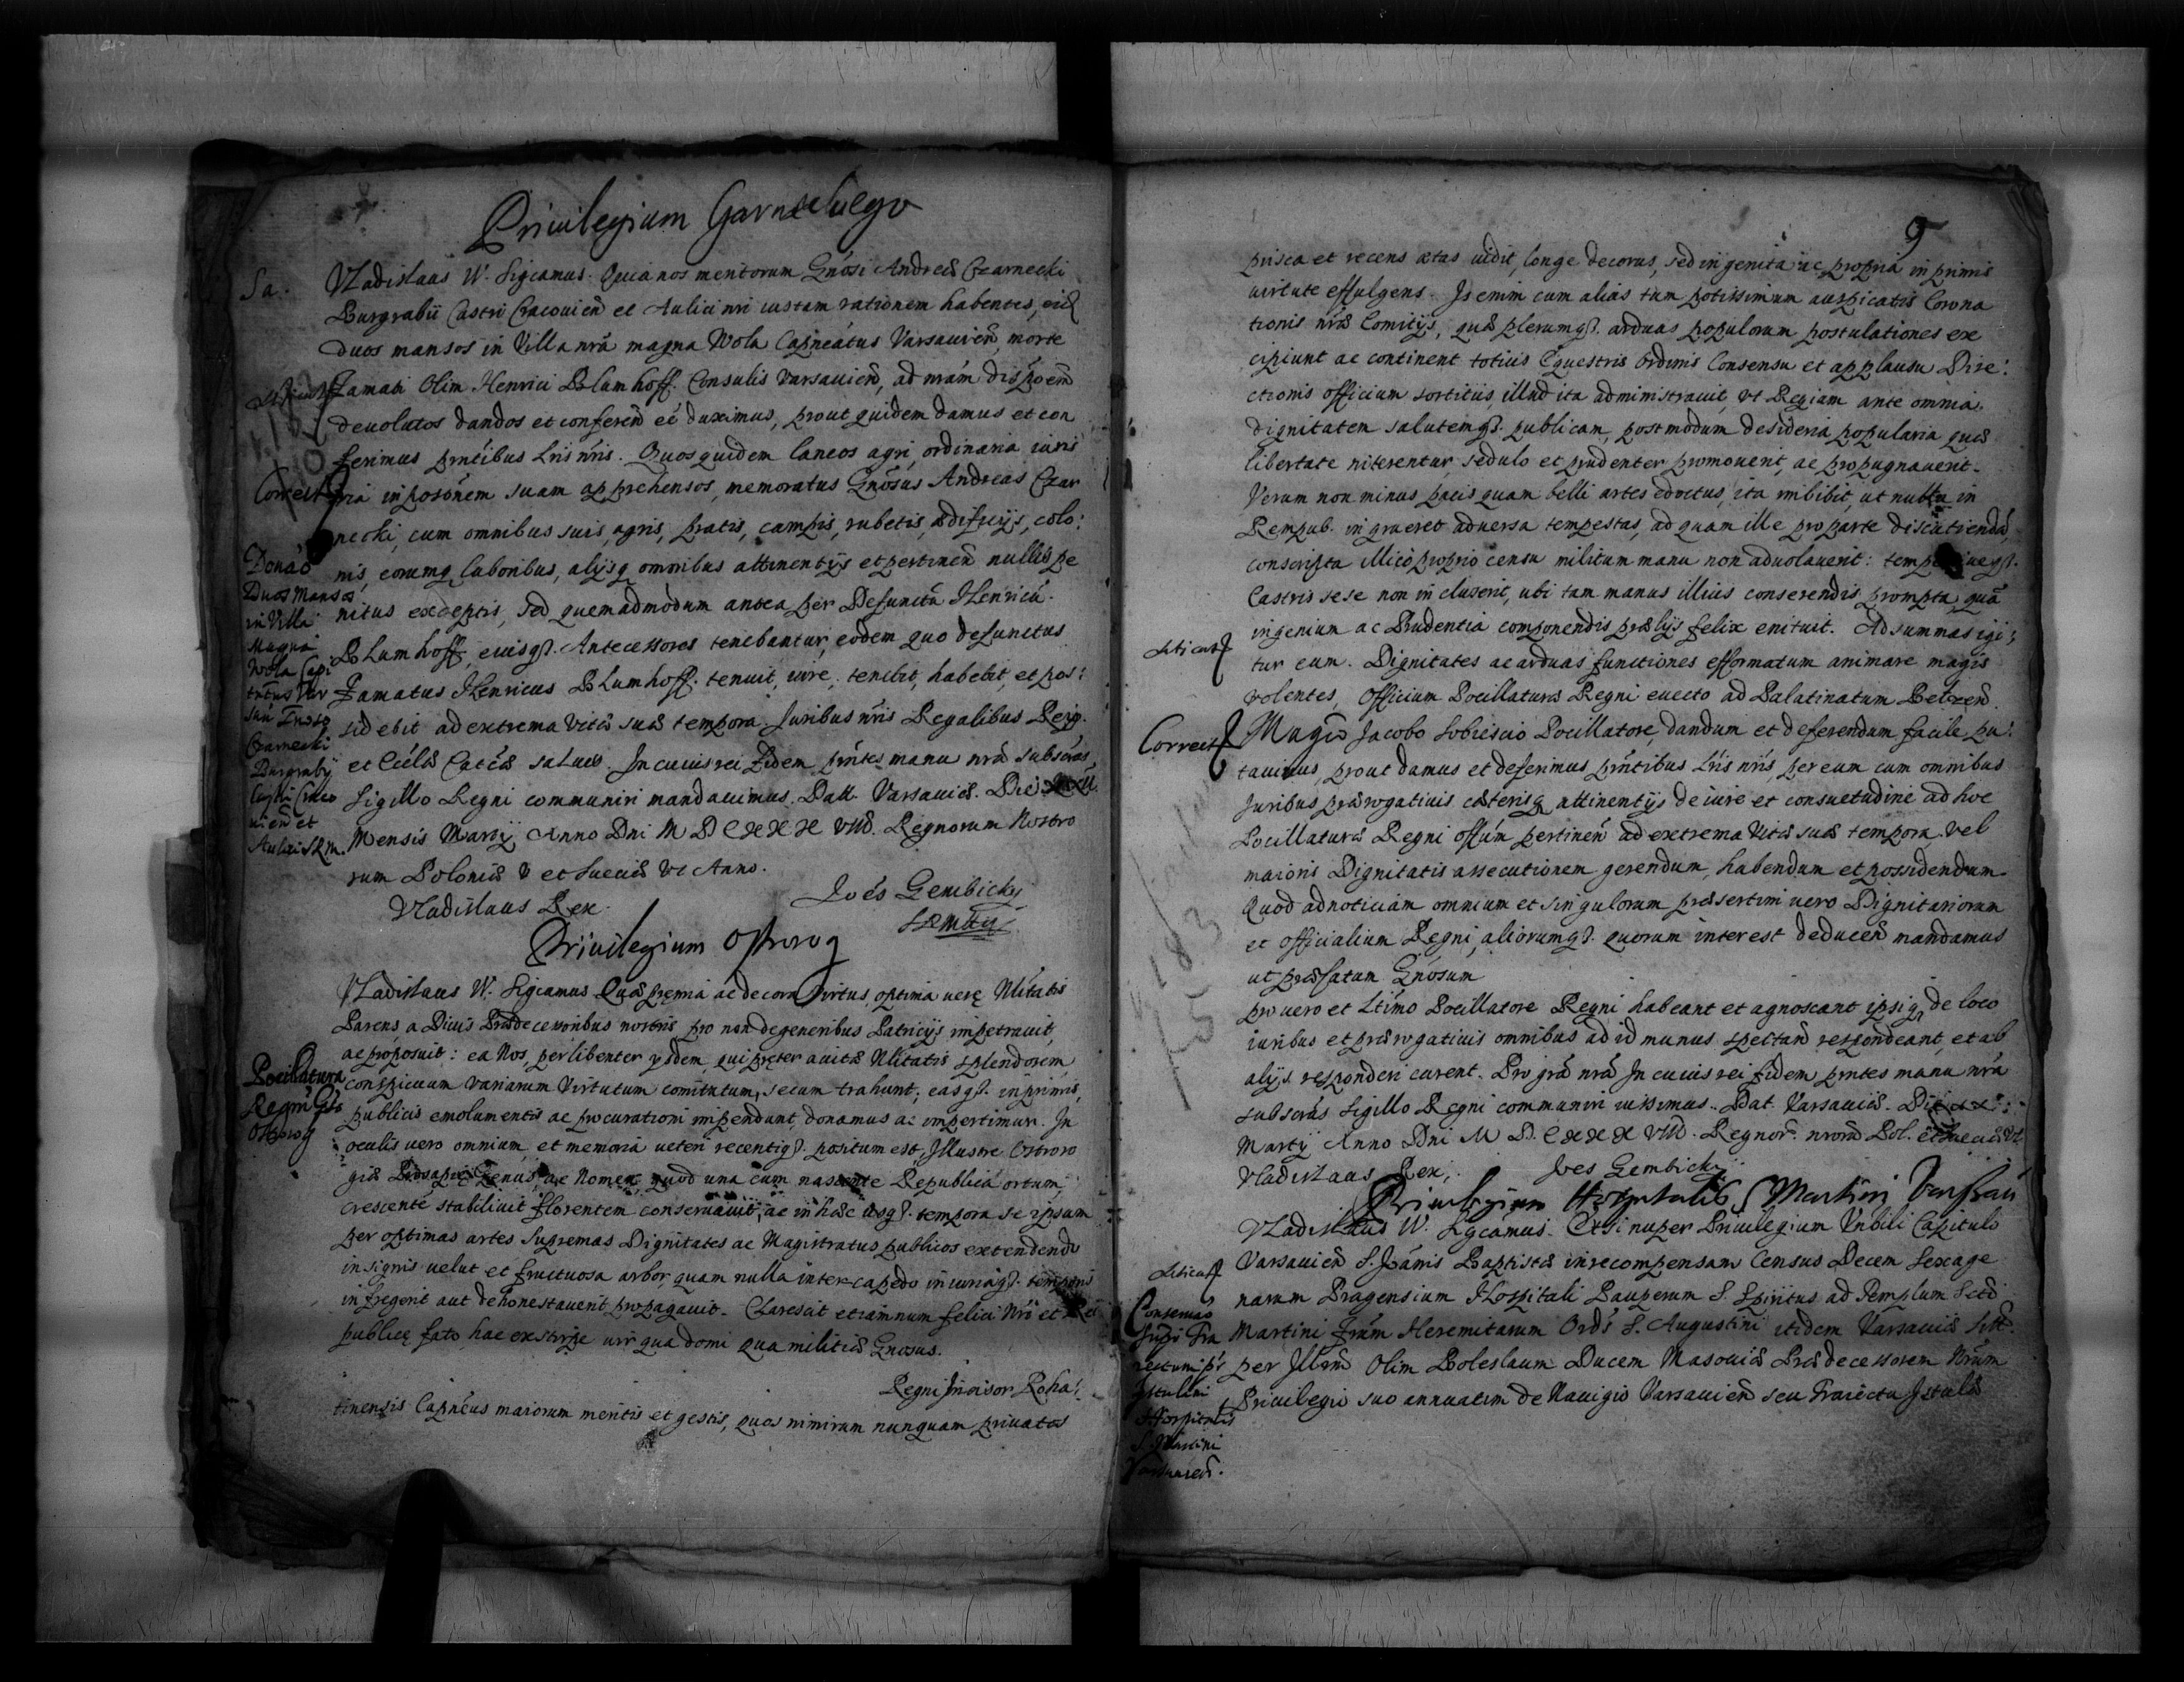 Privilegium Czarneckiego
Sa.
Vladislaus IV. Sigcamus. Quia nos meritorum Gnosi Andreæ Czarnecki
Burgrabii Castri Cracouien et Aulici nri iustam rationem habentes, eid
duos mansos in Villa nrâ magna Wola Capneátus Varsauien, morte
Famati Olim Henrici Blumhoff. Consulis Varsauien, ad nrám dispoem
deuolutos dandos et conferen eé duximus, prout quidem damus et con
ferimus pntibus Lris nris. Quos quidem laneos agri, ordinaria iuris
Correct
via in posonem suam apprehensos, memoratus Gnosus Andreas Czar
necki, cum omnibus suis agris, pratis, campis, rubetis, ædificijs, colo:
nis, eorumq laboribus, alijsq omnibus attinentijs et pertinen nullis pe
nitus exceptis, sed quemadmodum antea per Defunctu Henricu.
Blumhoff, eiusq3. Antecessores tenebantur, eodem quo defunctus
Famatus Henricus Blumhoff. tenuit, iure, tenebit, habebit, et pos:
sidebit ad extrema vitæ suæ tempora. Iuribus nris Regalibus Reip.
et Eccliæ Catcæ saluis. In cuius rei fidem pntes manu nrâ subscras
Sigillo Regni communiri mandauimus. Datt. Varsauiæ. Die
Mensis Martij Anno Dni M D C XXX VIII. Regnorum Nostro
rum Poloniæ V et Sueciæ VI Anno.
Donaó
Duos Mansos
in Villa
Magna
Wola Capi
tntus Var
sau Gnoso
Czarnecki
Burgraby
Castri Craco
uien et
Aulici SRM.
Vladislaus Rex.
Ioés Gembicky
Privilegium Ostrorog
Vladislaus IV. Sigcamus Quæ præmia ac decora virtus, optima uerę Nlitatis
Parens, a Diuis Prædecessoribus nostris pro non degeneribus Patricijs impetrauit,
ac proposuit: ea Nos, perlibenter ysdem, qui pręter auitæ Nlitatis splendorem,
conspicuum variarum Virtutum comitatum, secum trahunt; easq3. in primis,
publicis emolumentis ac procurationi impendunt, donamus ac impertimur. In
oculis uero omnium, et memoria ueteri recentiq3. positum est, Illustre Ostroro
giæ Prosapię Genus, ac Nomen, quod una cum nascente Republica ortum,
crescente stabiliuit florentem conseruauit, ac in hæc usq3. tempora se ipsum
per optimas artes Supremas Dignitates ac Magistratus publicos extendendo
insignis uelut et fructuosa arbor quam nulla intercapedo iniuriaq3. temporis
infregerit aut dehonestauerit propagauit. Clarescit etiamnum felici Nro et Rei
publicę fato, hac ex stirpe uir qua domi qua militiæ Gnosus.
Regni Incisor Roha:
tinensis Capneus maiorum meritis et gestis, quos nimirum nunquam priuatos
Pocillatura
Regni Gso
Ostrorog
9
prisca et recens ætas uidit, longe decorus, sed ingenita ac propria in primis
uirtute effulgens. Is enim cum alias tum potissimum auspicatis Corona
tionis nræ Comitijs, quæ plerumq3. arduas populorum postulationes ex
cipiunt ac continent totius Equestris Ordinis Consensu et applausu Dire:
ctionis officium sortitus, illud ita administrauit, ut Regiam ante omnia,
dignitatem salutemq3. publicam, postmodum desideria popularia quæ
libertate niterentur, sedulo et prudenter promouerit, ac propugnauerit.
Verum non minus pacis quam belli artes edoctus, ita imbibit, ut nulla in
Rempub. ingrueret aduersa tempestas, ad quam ille pro parte discutienda,
conscripta illico proprio censu militum manu non aduolauerit:
Castris sese non incluserit, ubi tam manus illius conserendis prompta, quã
ingenium ac Prudentia componendis prælijs felix enituit. Ad summas igi:
tur eum. Dignitates ac arduas functiones efformatum animare magis
volentes, Officium Pocillaturæ Regni euecto ad Palatinatum Belzen.
Correct
Magco Jacobo Sobiescio Pocillatore, dandum et deferendum facile pu:
tauimus, prout damus et deferimus, pntibus Lris nris, per eum cum omnibus
Iuribus prærogatiuis cæterisq attinentijs de iure et consuetudine ad hoc
Pocillaturæ Regni offum pertinen ad extrema Vitæ suæ tempora. vel
maioris Dignitatis assecutionem gerendum, habendum et possidendum.
Quod ad noticiam omnium et singulorum præsertim uero Dignitariorum
et officialium Regni, aliorumq3. quorum interest deducen mandamus
ut præfatum Gnosum
pro uero et Ltimo Pocillatore Regni habeant et agnoscant ipsiq de loco
iuribus et prærogatiuis omnibus ad id munus spectan respondeant, et ab
alijs responderi curent. Pro grâ nrâ In cuius rei fidem pntes manu nrâ
subscras Sigillo Regni communiri iussimus. Dat. Varsauiæ. Die
Martij Anno Dni M D C XXX VIII. Regnor. nrorũ Pol. et Sueciæ VI
Vladislaus Rex,
Ioes Gembicki
Privilegium Hospitalis S Martini Varsau
Vladislaus IV. Sigcamus. Etsi nuper Priuilegium Vnbili Capitulo
Varsauien S. Joánnis Baptistæ in recompensam Census Decem Sexage
narum Pragensium Hospitali Pauperum S. Spiritus ad Templum Scti
Martini Frám Heremitarum Ordis S. Augustini itidem Varsauiæ
per Illrem Olim Boleslaum Ducem Masouiæ Prædecessorem Nrum
Priuilegio suo annuatim de Nauigio Varsauien seu Traiectu Istulæ
Hospitalis
S. Martini
Varsauien.